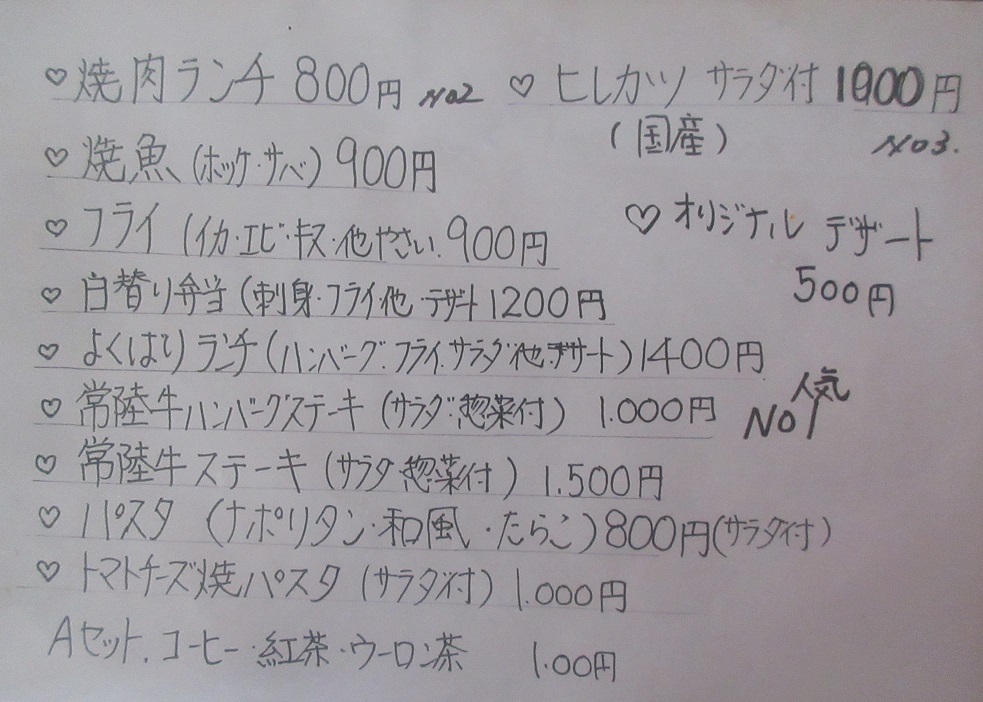 ♡ 焼肉ランチ 800円 No2
♡ ヒレカツ サラダ付 1000円
(国産) No3.
♡ 焼魚 (ホッケ・サバ) 900円
♡ フライ (イカ・エビ・キス・他やさい. 900円
♡ オリジナル デザート
500円
♡ 日替り弁当 (刺身・フライ・他・デザート 1200円
♡ よくばりランチ (ハンバーグ.フライ.サラダ他.デザート) 1400円
♡ 常陸牛ハンバーグステーキ (サラダ・惣菜付) 1.000円
人気
No1
♡ 常陸牛ステーキ (サラダ 惣菜付) 1.500円
♡ パスタ (ナポリタン・和風・たらこ) 800円(サラダ付)
♡ トマトチーズ焼パスタ (サラダ付) 1.000円
Aセット.コーヒー・紅茶・ウーロン茶 1.00円